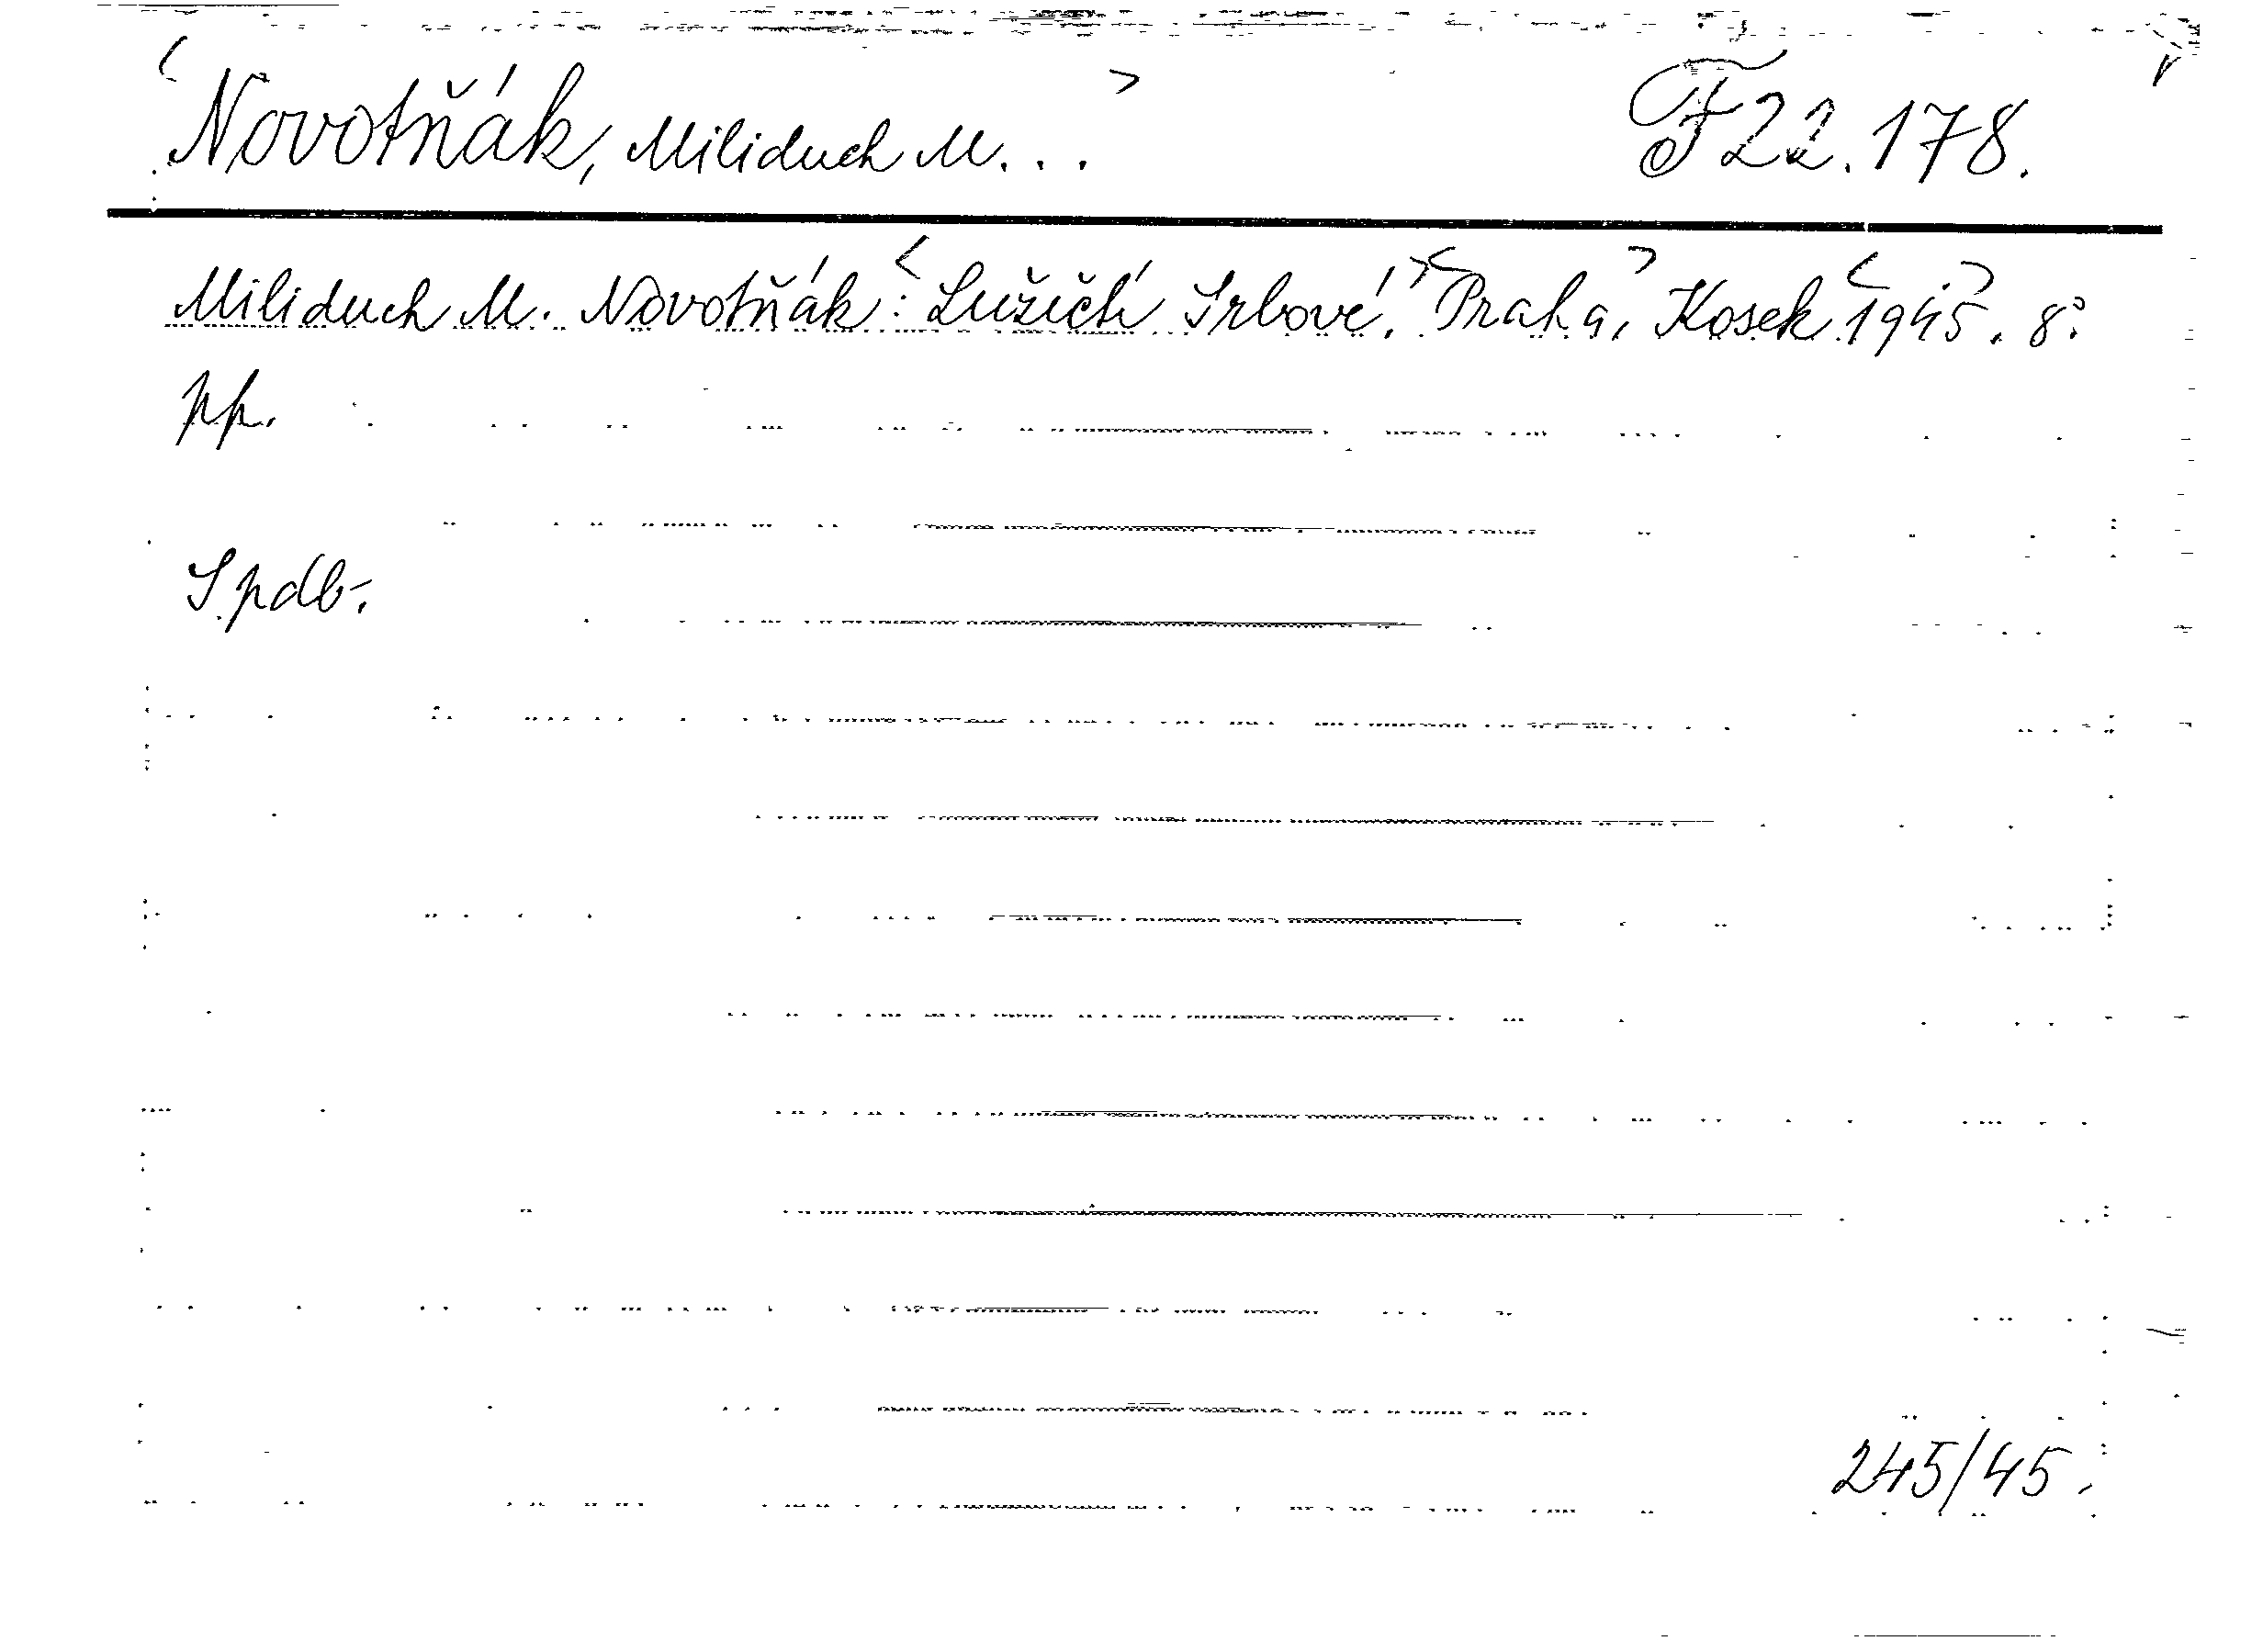 <Novotňák, Miliduch M...> F 22.178.
Miliduch M. Novotňák: <Lužičtí Srbové.> <Praha,> Kosek <1945>. 8°.
pp.
Spdb.
245/45.